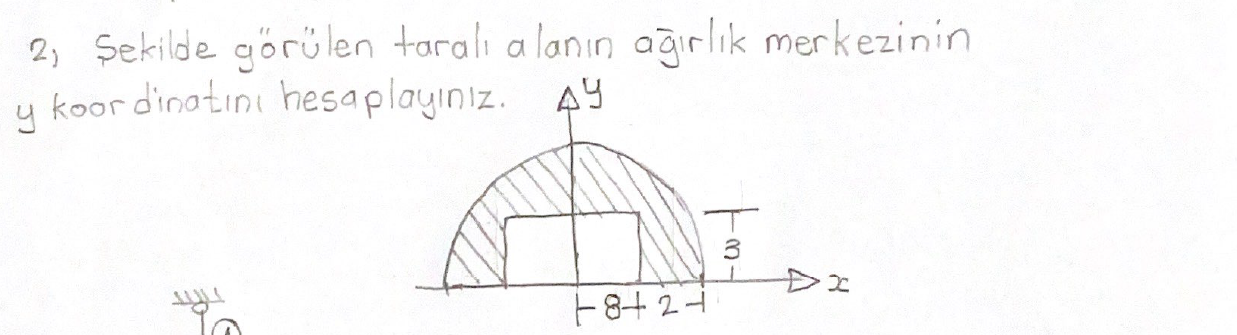 2, Şekilde görülen taralı alanın ağırlık merkezinin
y koordinatını hesaplayınız.
y
3
8 2
x